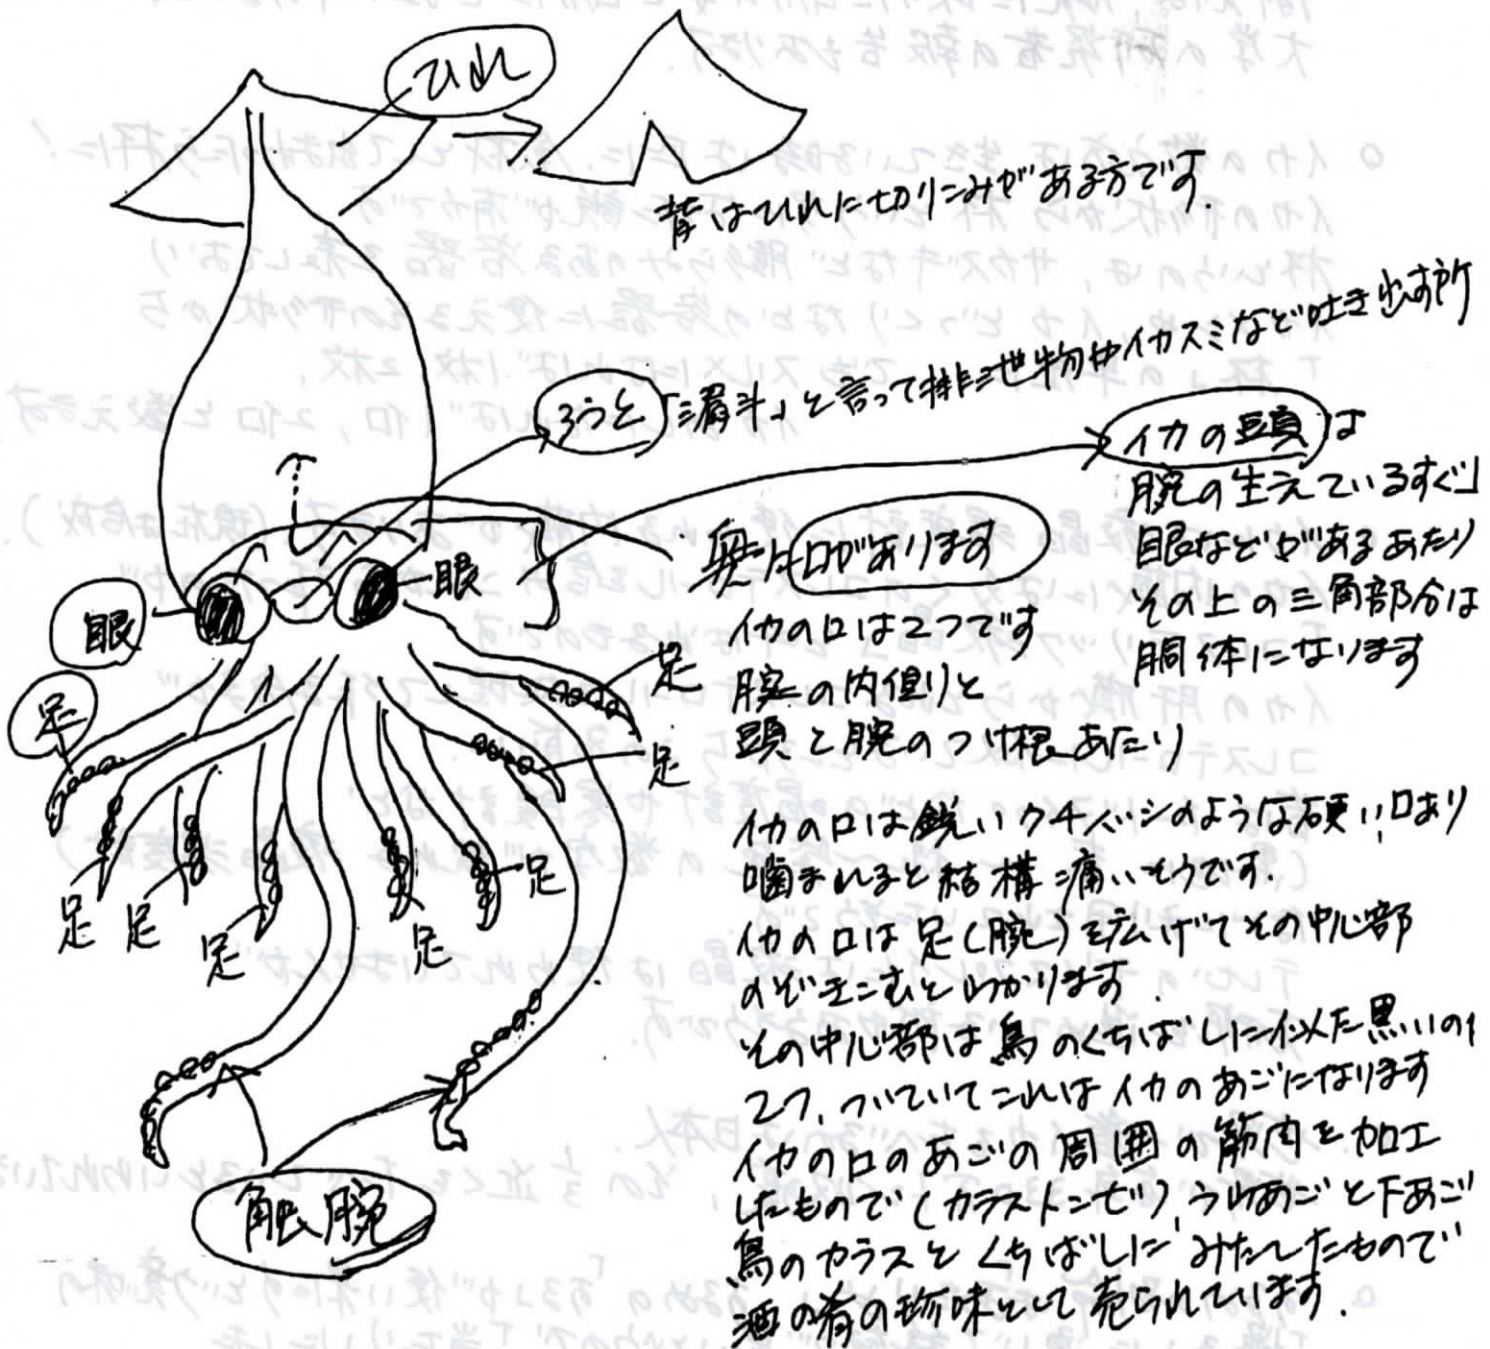 ひれ
背はひれに切りこみがある方です.
ろうと「漏斗」と言って排泄物やイカスミなど吐き出す所
イカの頭は
腕の生えているすぐ上
眼などがあるあたり
その上の三角部分は
胴体になります
眼
眼
奥に口があります
イカの口は2つです
腕の内側と
頭と腕のつけ根あたり
足
足
足
足
足
足
足
足
イカの口は鋭いクチバシのような硬い口あり
噛まれると結構痛いそうです.
イカの口は足(腕)を広げてその中心部
のぞきこむとわかります.
その中心部は鳥のくちばしに似た黒いの
2つ,ついていてこれはイカのあごになります
イカの口のあごの周囲の筋肉を加工
したもので(カラストンビ)うわあごと下あご
鳥のカラスとくちばしにみたてしたもので
酒の肴の珍味として売られています.
触腕